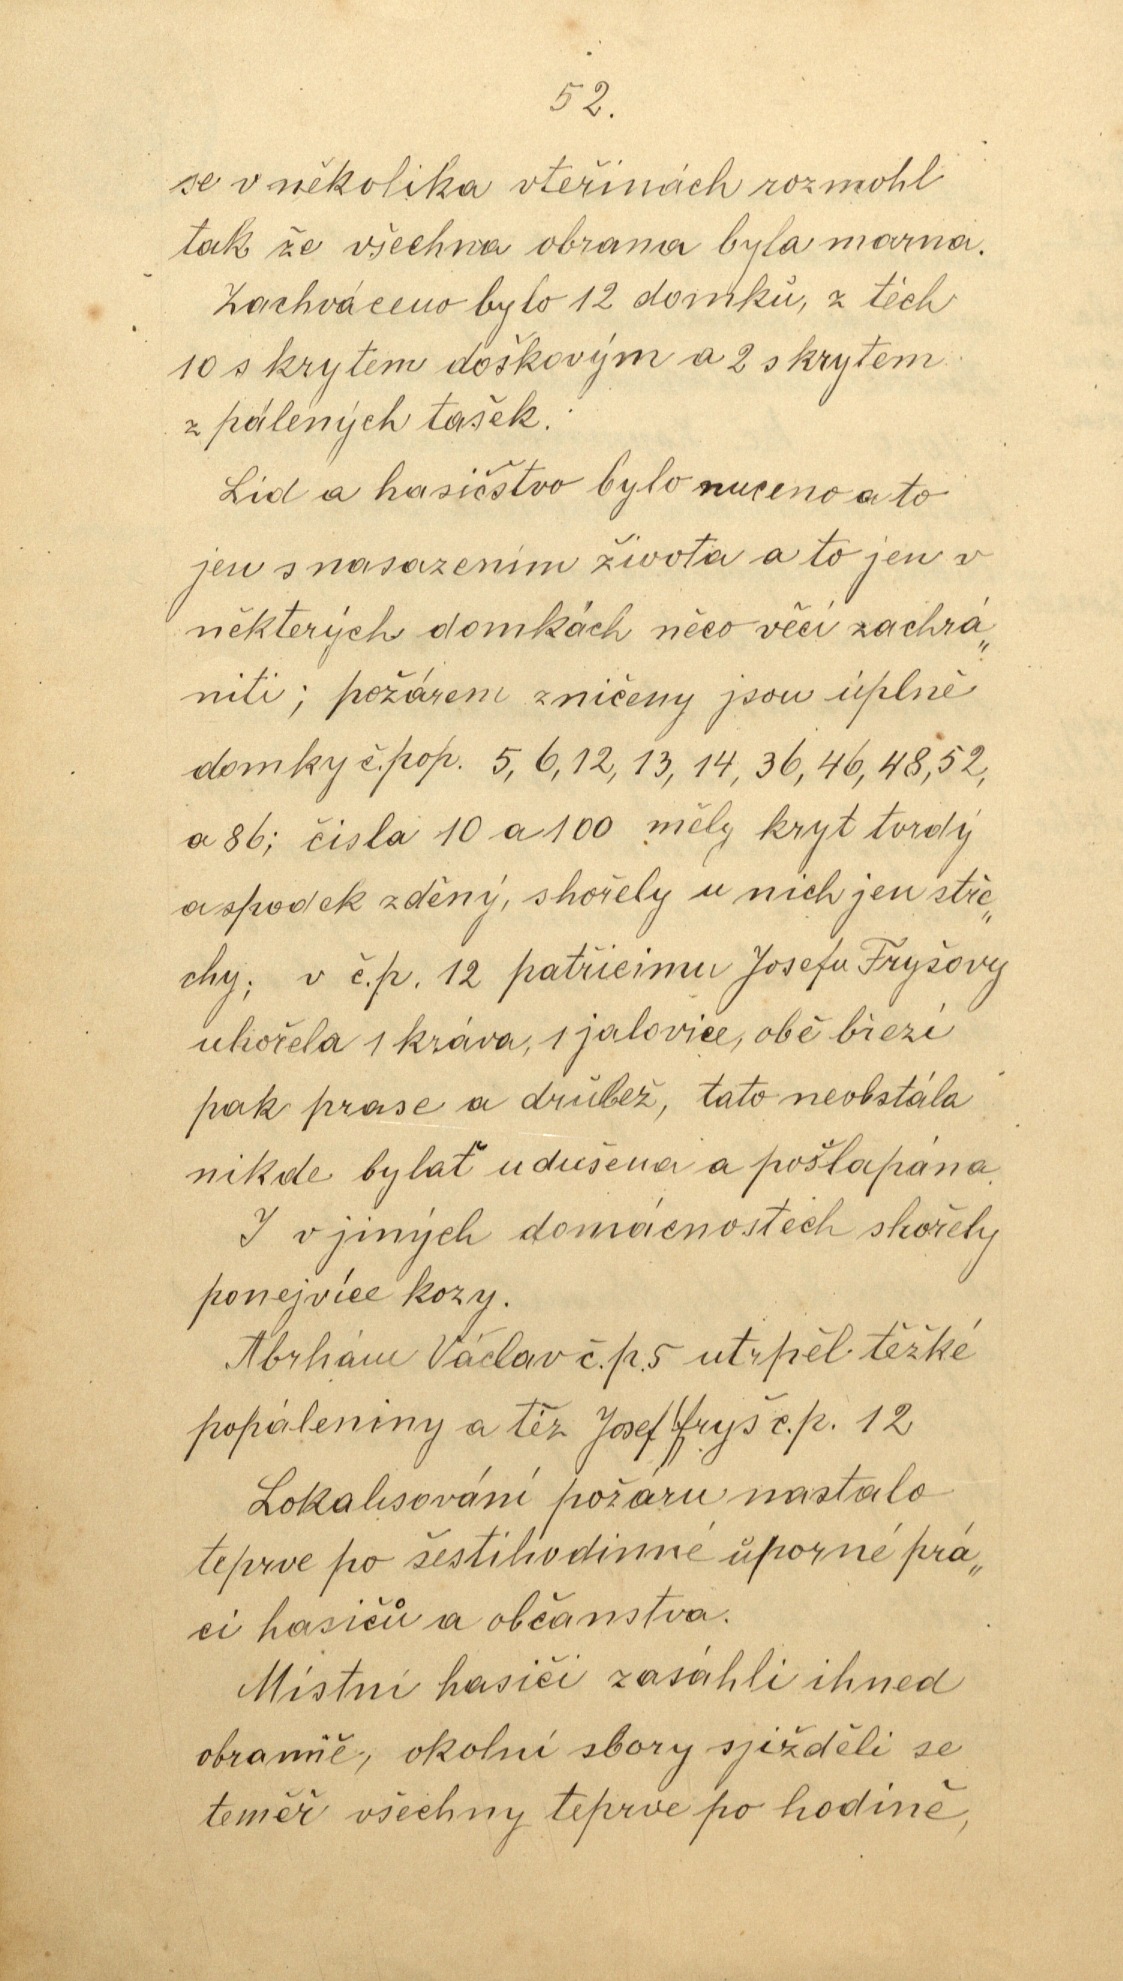 52.
se v několika vteřinách rozmohl
tak že všechna obrana byla marna.
Zachváceno bylo 12 domků, z těch
10 s krytem doškovým a 2 s krytem
z pálených tašek.
Lid a hasičstvo bylo nuceno a to
jen s nasazením života a to jen v
některých domkách něco věcí zachrá„
niti; požárem zničeny jsou úplně
domky č.pop. 5, 6, 12, 13, 14, 36, 46, 48, 52,
a 86; čisla 10 a 100 měly kryt tvrdý
a spodek zděný, shořely u nich jen stře„
chy; v č.p. 12 patřicimu Josefu Fryšovy
uhořela 1 kráva, 1 jalovice, obě březí
pak prase a drůbež, tato neobstála
nikde bylať udušena a pošlapána.
I v jiných domácnostech shořely
ponejvíce kozy.
Abrhám Václav č.p. 5 utrpěl těžké
popáleniny a též Josef Fryš č.p. 12
Lokalisování požáru nastalo
teprve po šestihodinné úporné prá„
ci hasičů a občanstva.
Místní hasiči zasáhli ihned
obranně, okolní sbory sjižděli se
teměř všechny teprve po hodině,